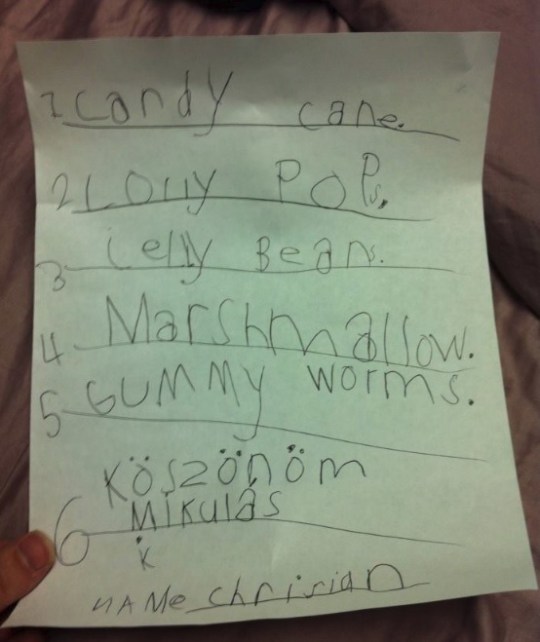 1 candy cane.
2 Lolly PoPs.
3 Jelly Beans.
4 Marshmallow.
5 GUMMY worms.
Köszönöm
6 Mikulás
K
NAMe chrisian